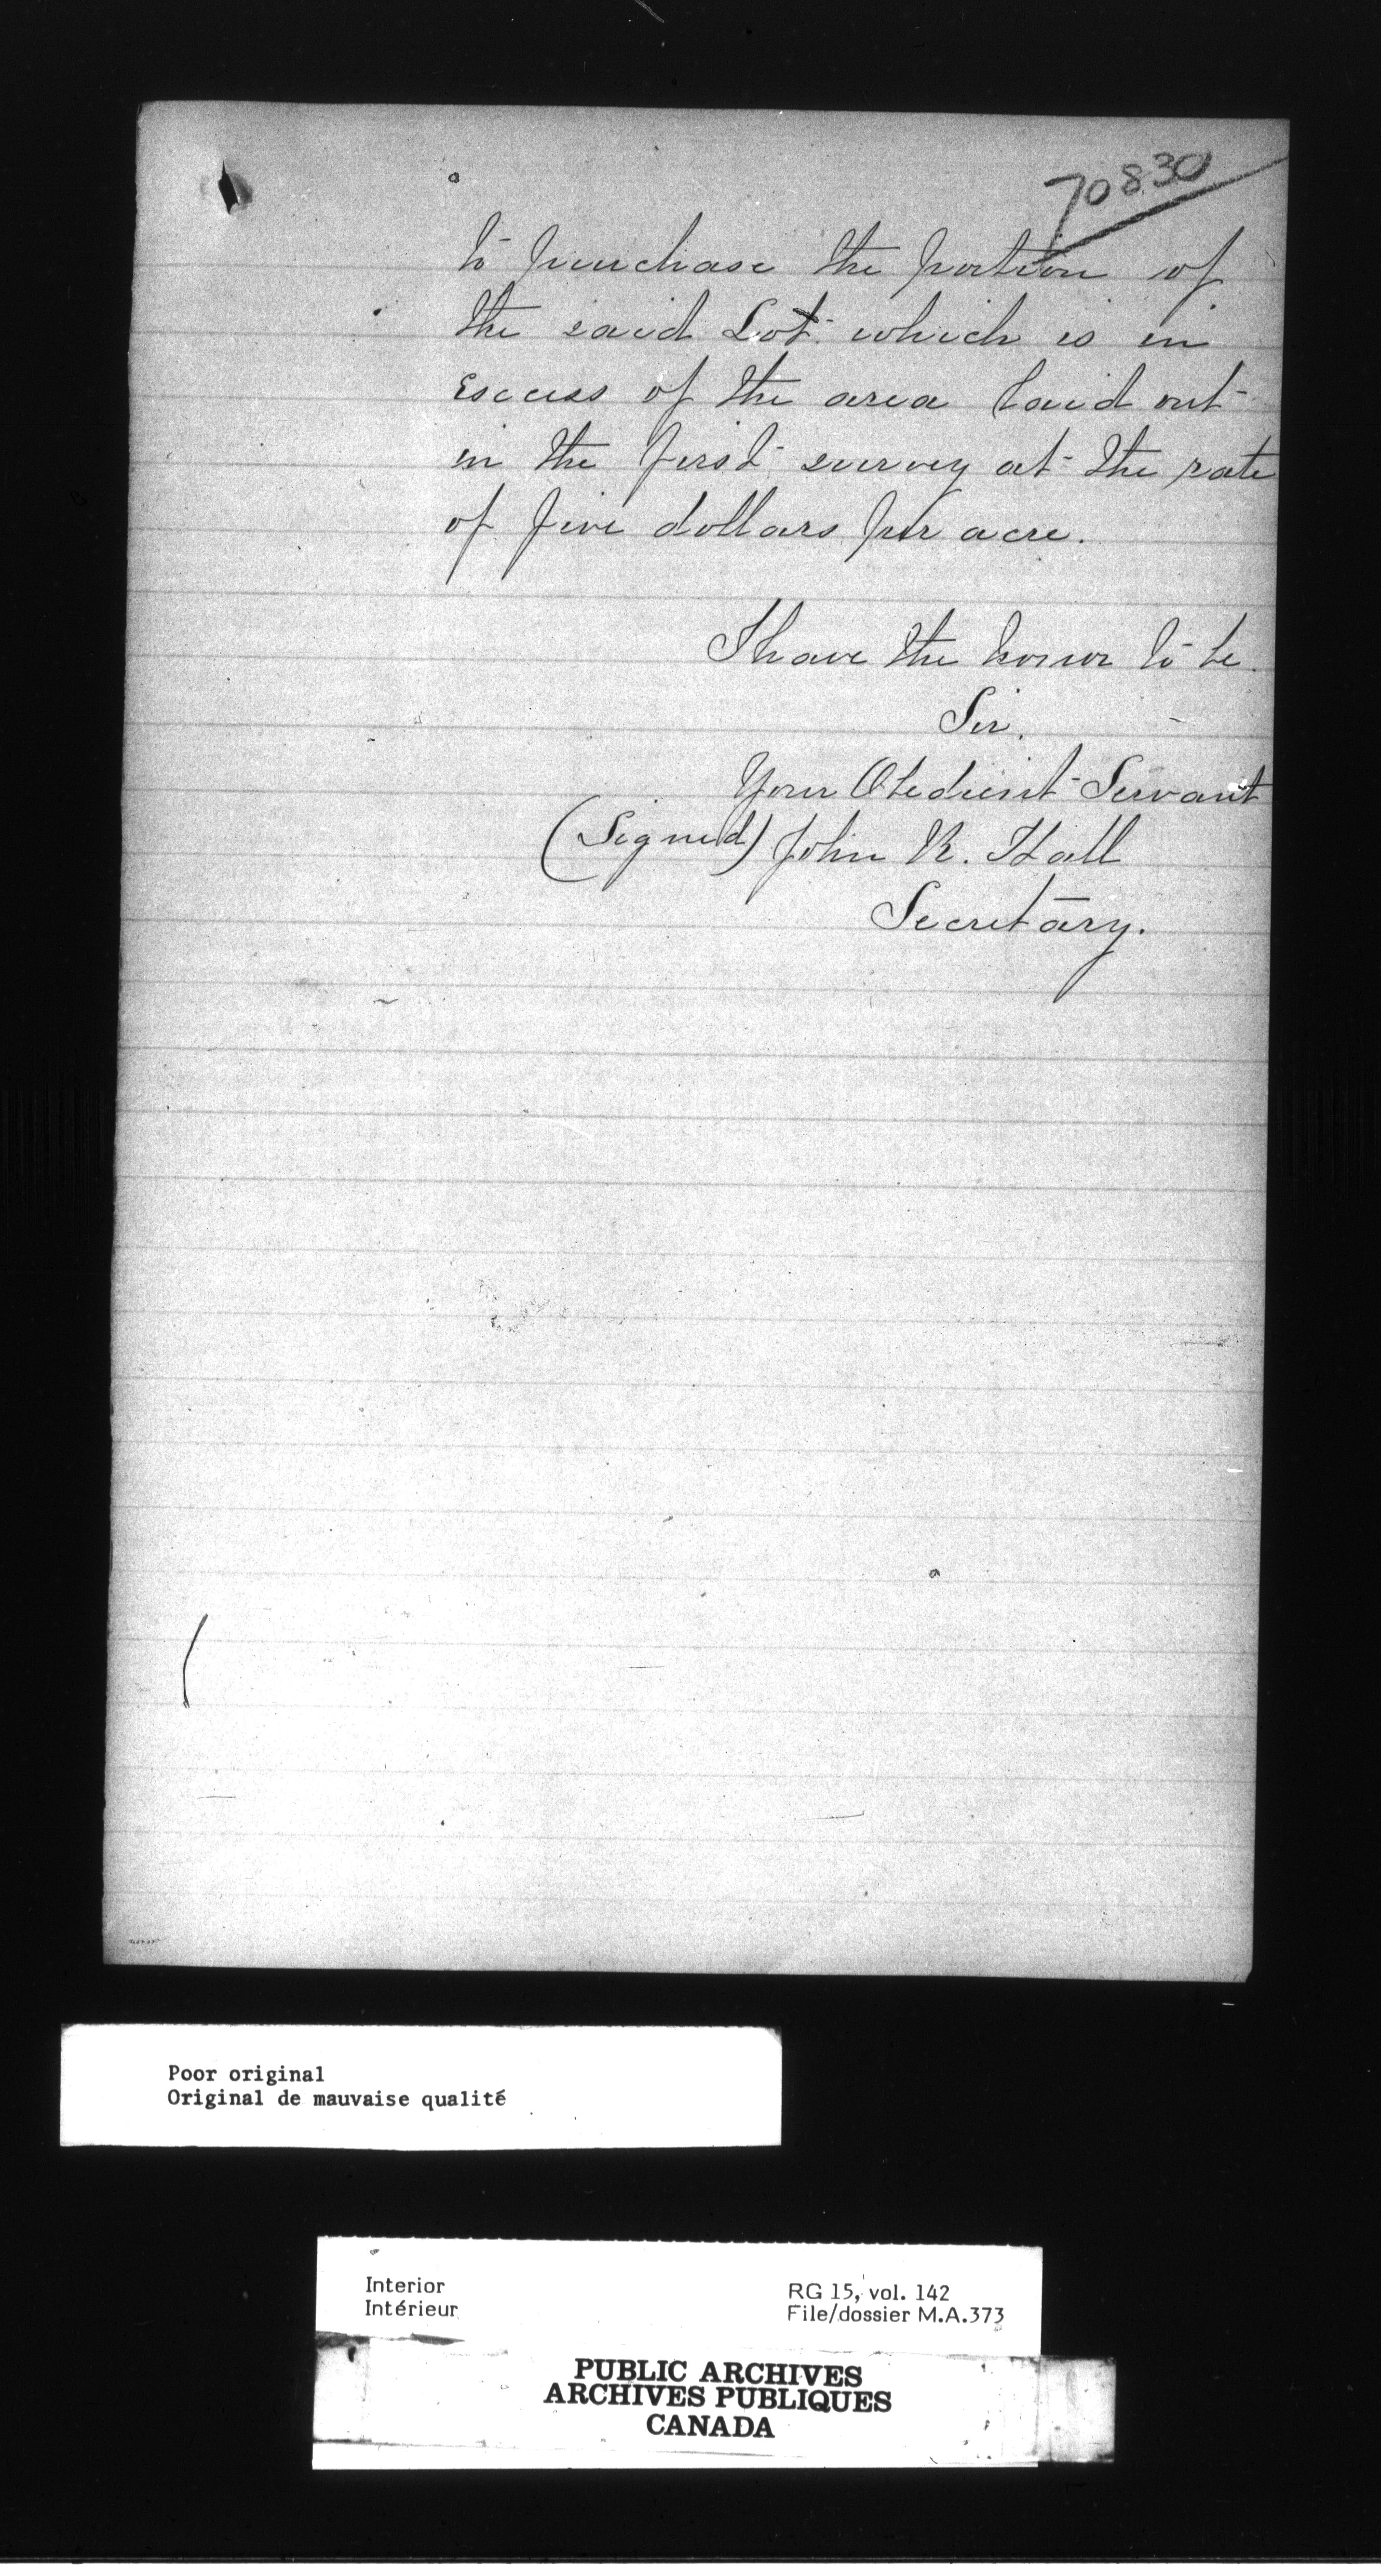 70830
to purchase the portion of
the said Lot which is in
excess of the area laid out
in the first survey at the rate
of five dollars per acre.
I have the honor to be
Sir.
Your Obedient Servant
(Signed) John R. Hall
Secretary.
Poor original
Original de mauvaise qualité
Interior
Intérieur
RG 15, vol. 142
File/dossier M.A.373
PUBLIC ARCHIVES
ARCHIVES PUBLIQUES
CANADA